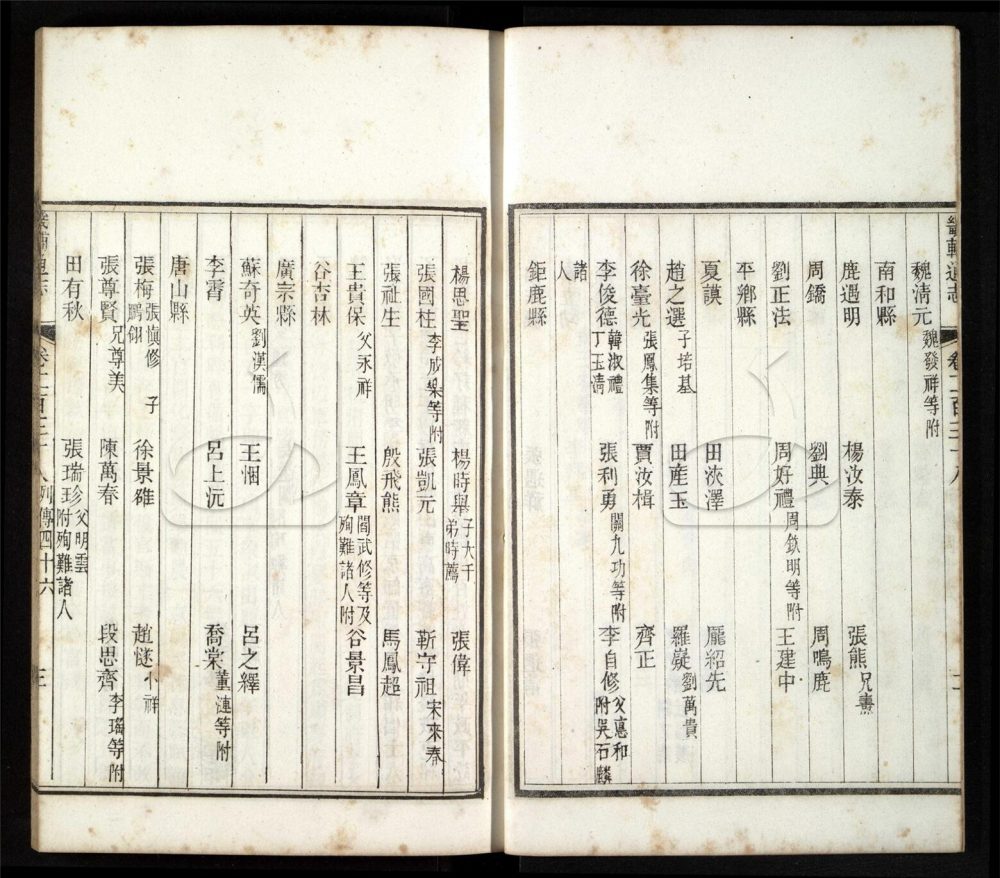 畿輔通志
魏清元 魏發祥等附
南和縣
鹿遇明 楊汝泰 張熊 兄燾
周鐈 劉典 周鳴鹿
劉正法 周好禮 周欽明等附 王建中
平鄉縣
夏謨 田浹澤 龐紹先
趙之選 子培基 田產玉 羅嶷 劉萬貴
徐臺光 張鳳集等附 賈汝楫 齊正
李俊德 韓淑禮 丁玉清 張利勇 關九功等附 李自修 父惠和 附吳石麟
諸人
鉅鹿縣
楊思聖 楊時舉 子大千 弟時薦 張偉
張國柱 李成樂等附 張凱元 靳守祖 宋來春
張祉生 殷飛熊 馬鳳超
王貴保 父永祥 王鳳章 閻武修等及 殉難諸人附 谷景昌
谷杏林
廣宗縣
蘇奇英 劉漢儒 王悃 呂之繹
李霄 呂上沅 喬棠 董漣等附
唐山縣
張梅 張慎修 子 鵬翎 徐景雒 趙燧 小祥
張尊賢 兄尊美 陳萬春 段思齊 李瑤等附
田有秋 張瑞珍 父明雲 附殉難諸人
列傳四十六 三